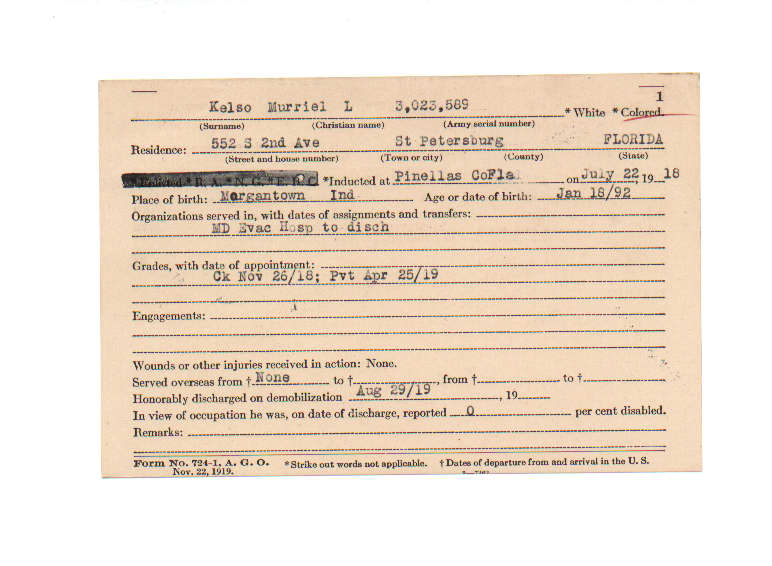 1
Kelso Murriel L 3,023,589 * White * Colored.
(Surname) (Christian name) (Army serial number)
Residence: 552 S 2nd Ave St Petersburg FLORIDA
(Street and house number) (Town or city) (County) (State)
* Enlisted * R. A. * N. G. * E. R. C. *Inducted at Pinellas CoFla on July 22, 19 18
Place of birth: Morgantown Ind Age or date of birth: Jan 18/92
Organizations served in, with dates of assignments and transfers:
MD Evac Hosp to disch
Grades, with date of appointment:
Ck Nov 26/18; Pvt Apr 25/19
Engagements:
Wounds or other injuries received in action: None.
Served overseas from † None to †, from † to †
Honorably discharged on demobilization Aug 29/19, 19
In view of occupation he was, on date of discharge, reported 0 per cent disabled.
Remarks:
Form No. 724-1, A. G. O. *Strike out words not applicable. † Dates of departure from and arrival in the U. S.
Nov. 22, 1919.